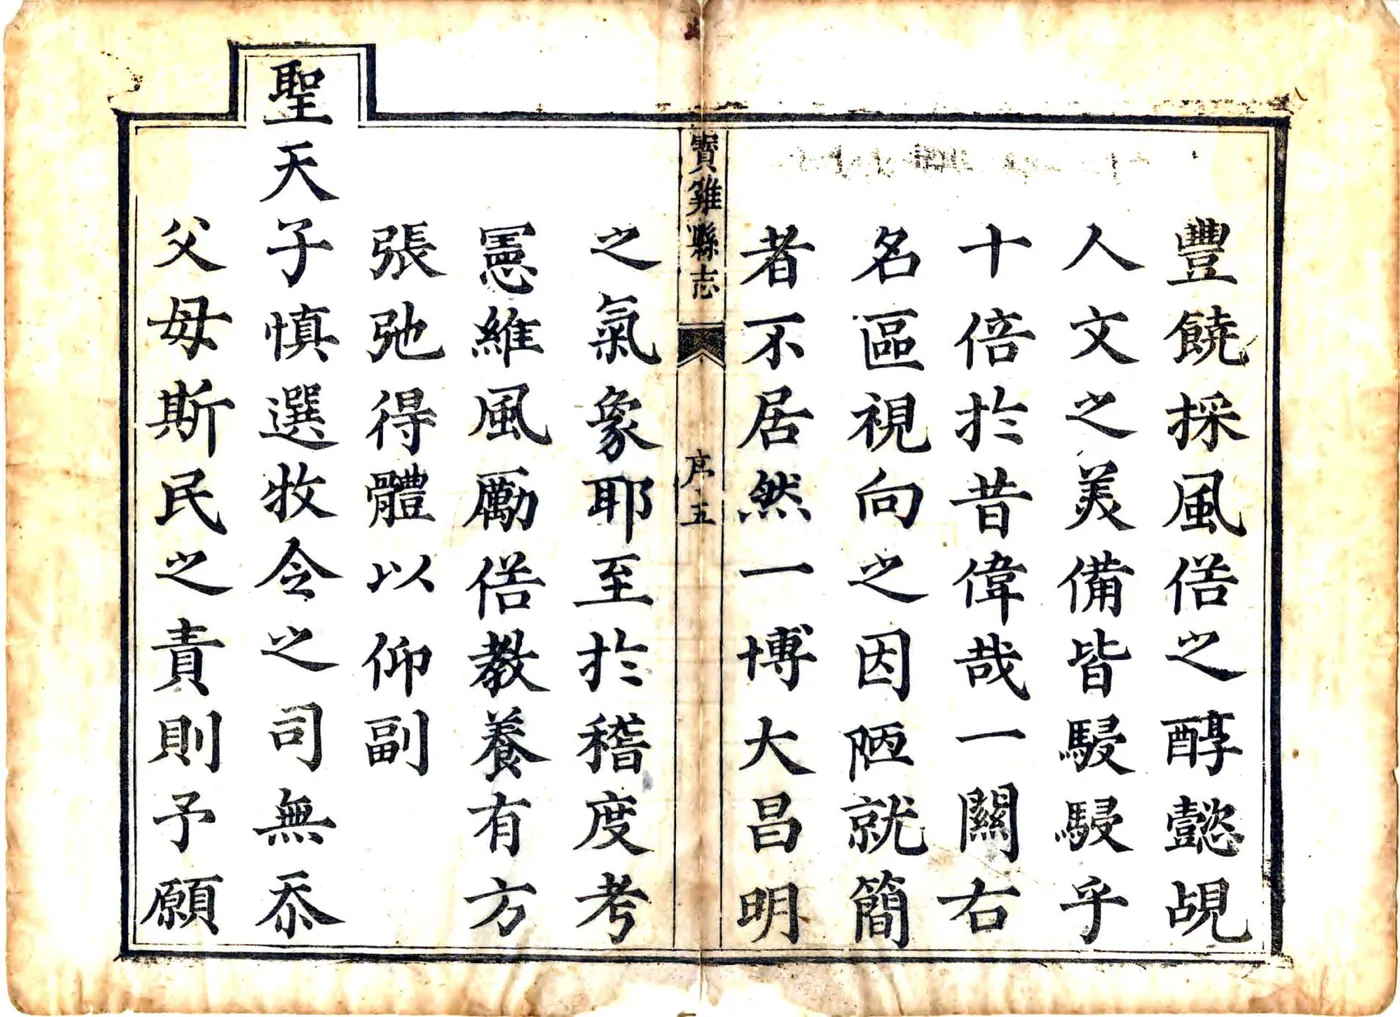 豐饒採風俗之醇懿覘
人文之美備皆駸駸乎
十倍於昔偉哉一關右
名區視向之因陋就簡
者不居然一博大昌明
寶雞縣志
序
五
之氣象耶至於稽度考
憲維風勵俗教養有方
張弛得體以仰副
聖天子慎選牧令之司無忝
父母斯民之責則予願